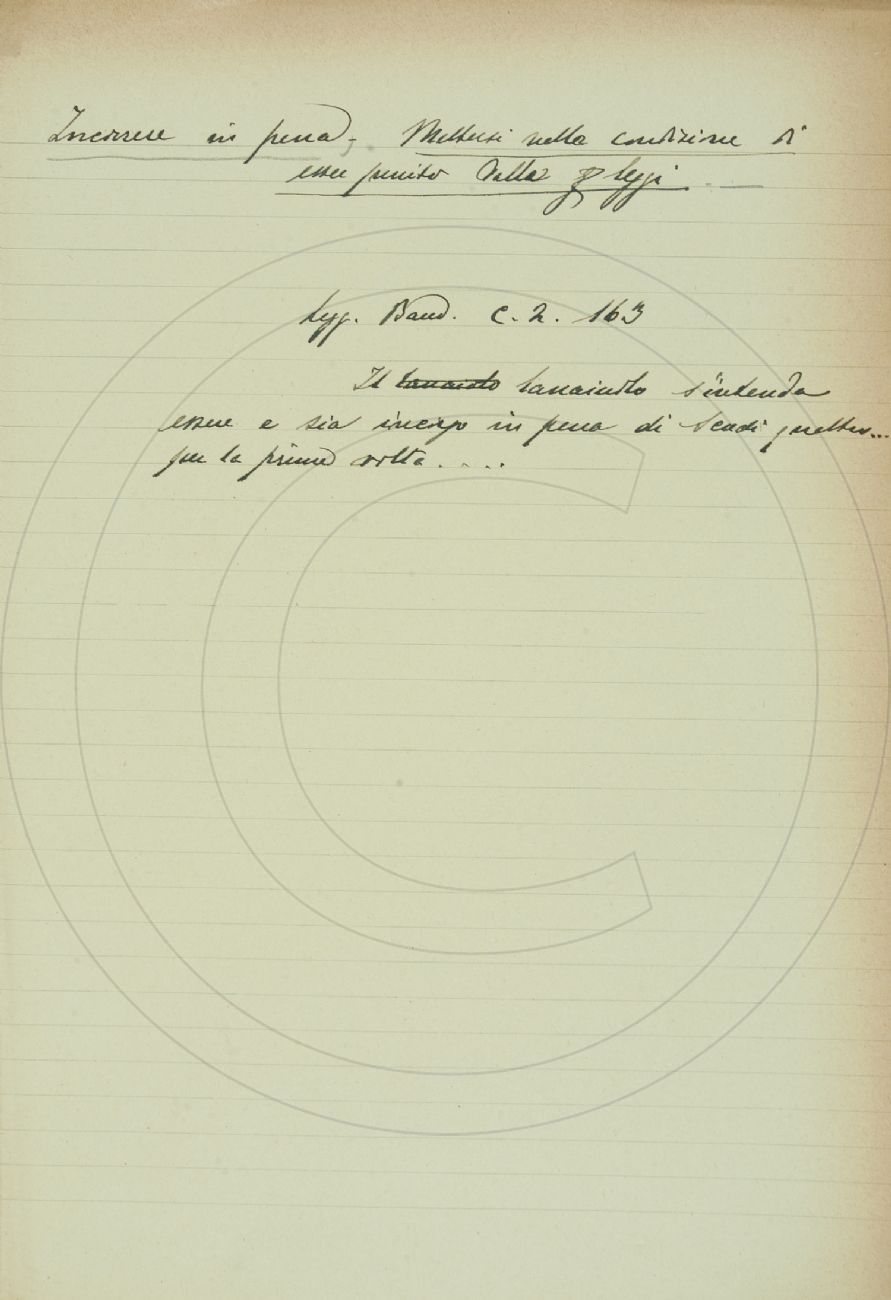 Incorrere in pena, Mettersi nella condizione di
esser punito dalle leggi.
Legg. Band. C. 2. 163
Il lanaiolo s'intenda
essere e sia incorso in pena di Scudi quattro...
per la prima volta....